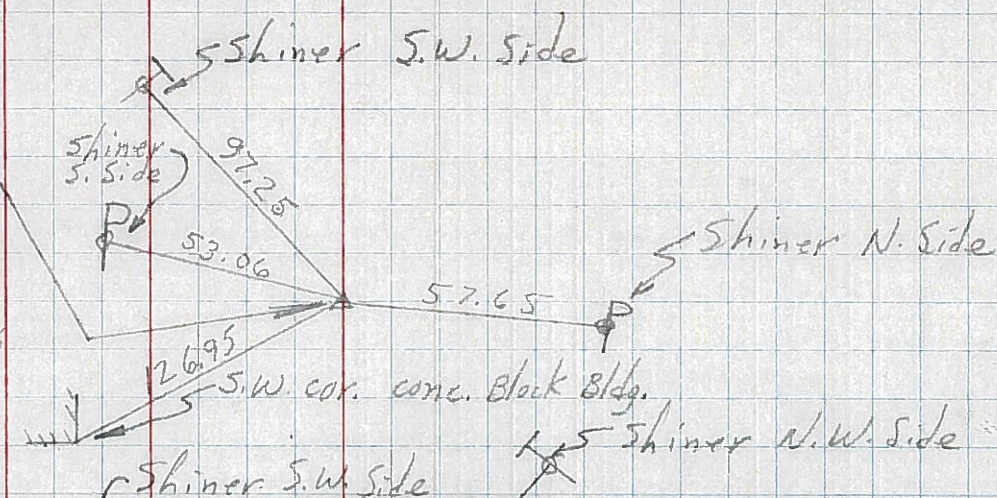 Shiner S.W. Side
T
Shiner
S. Side
97.25
P
53.06
Shiner N. Side
57.65
P
126.95
S.W. cor. conc. Block Bldg.
T
Shiner N.W. Side
Shiner S.W. Side